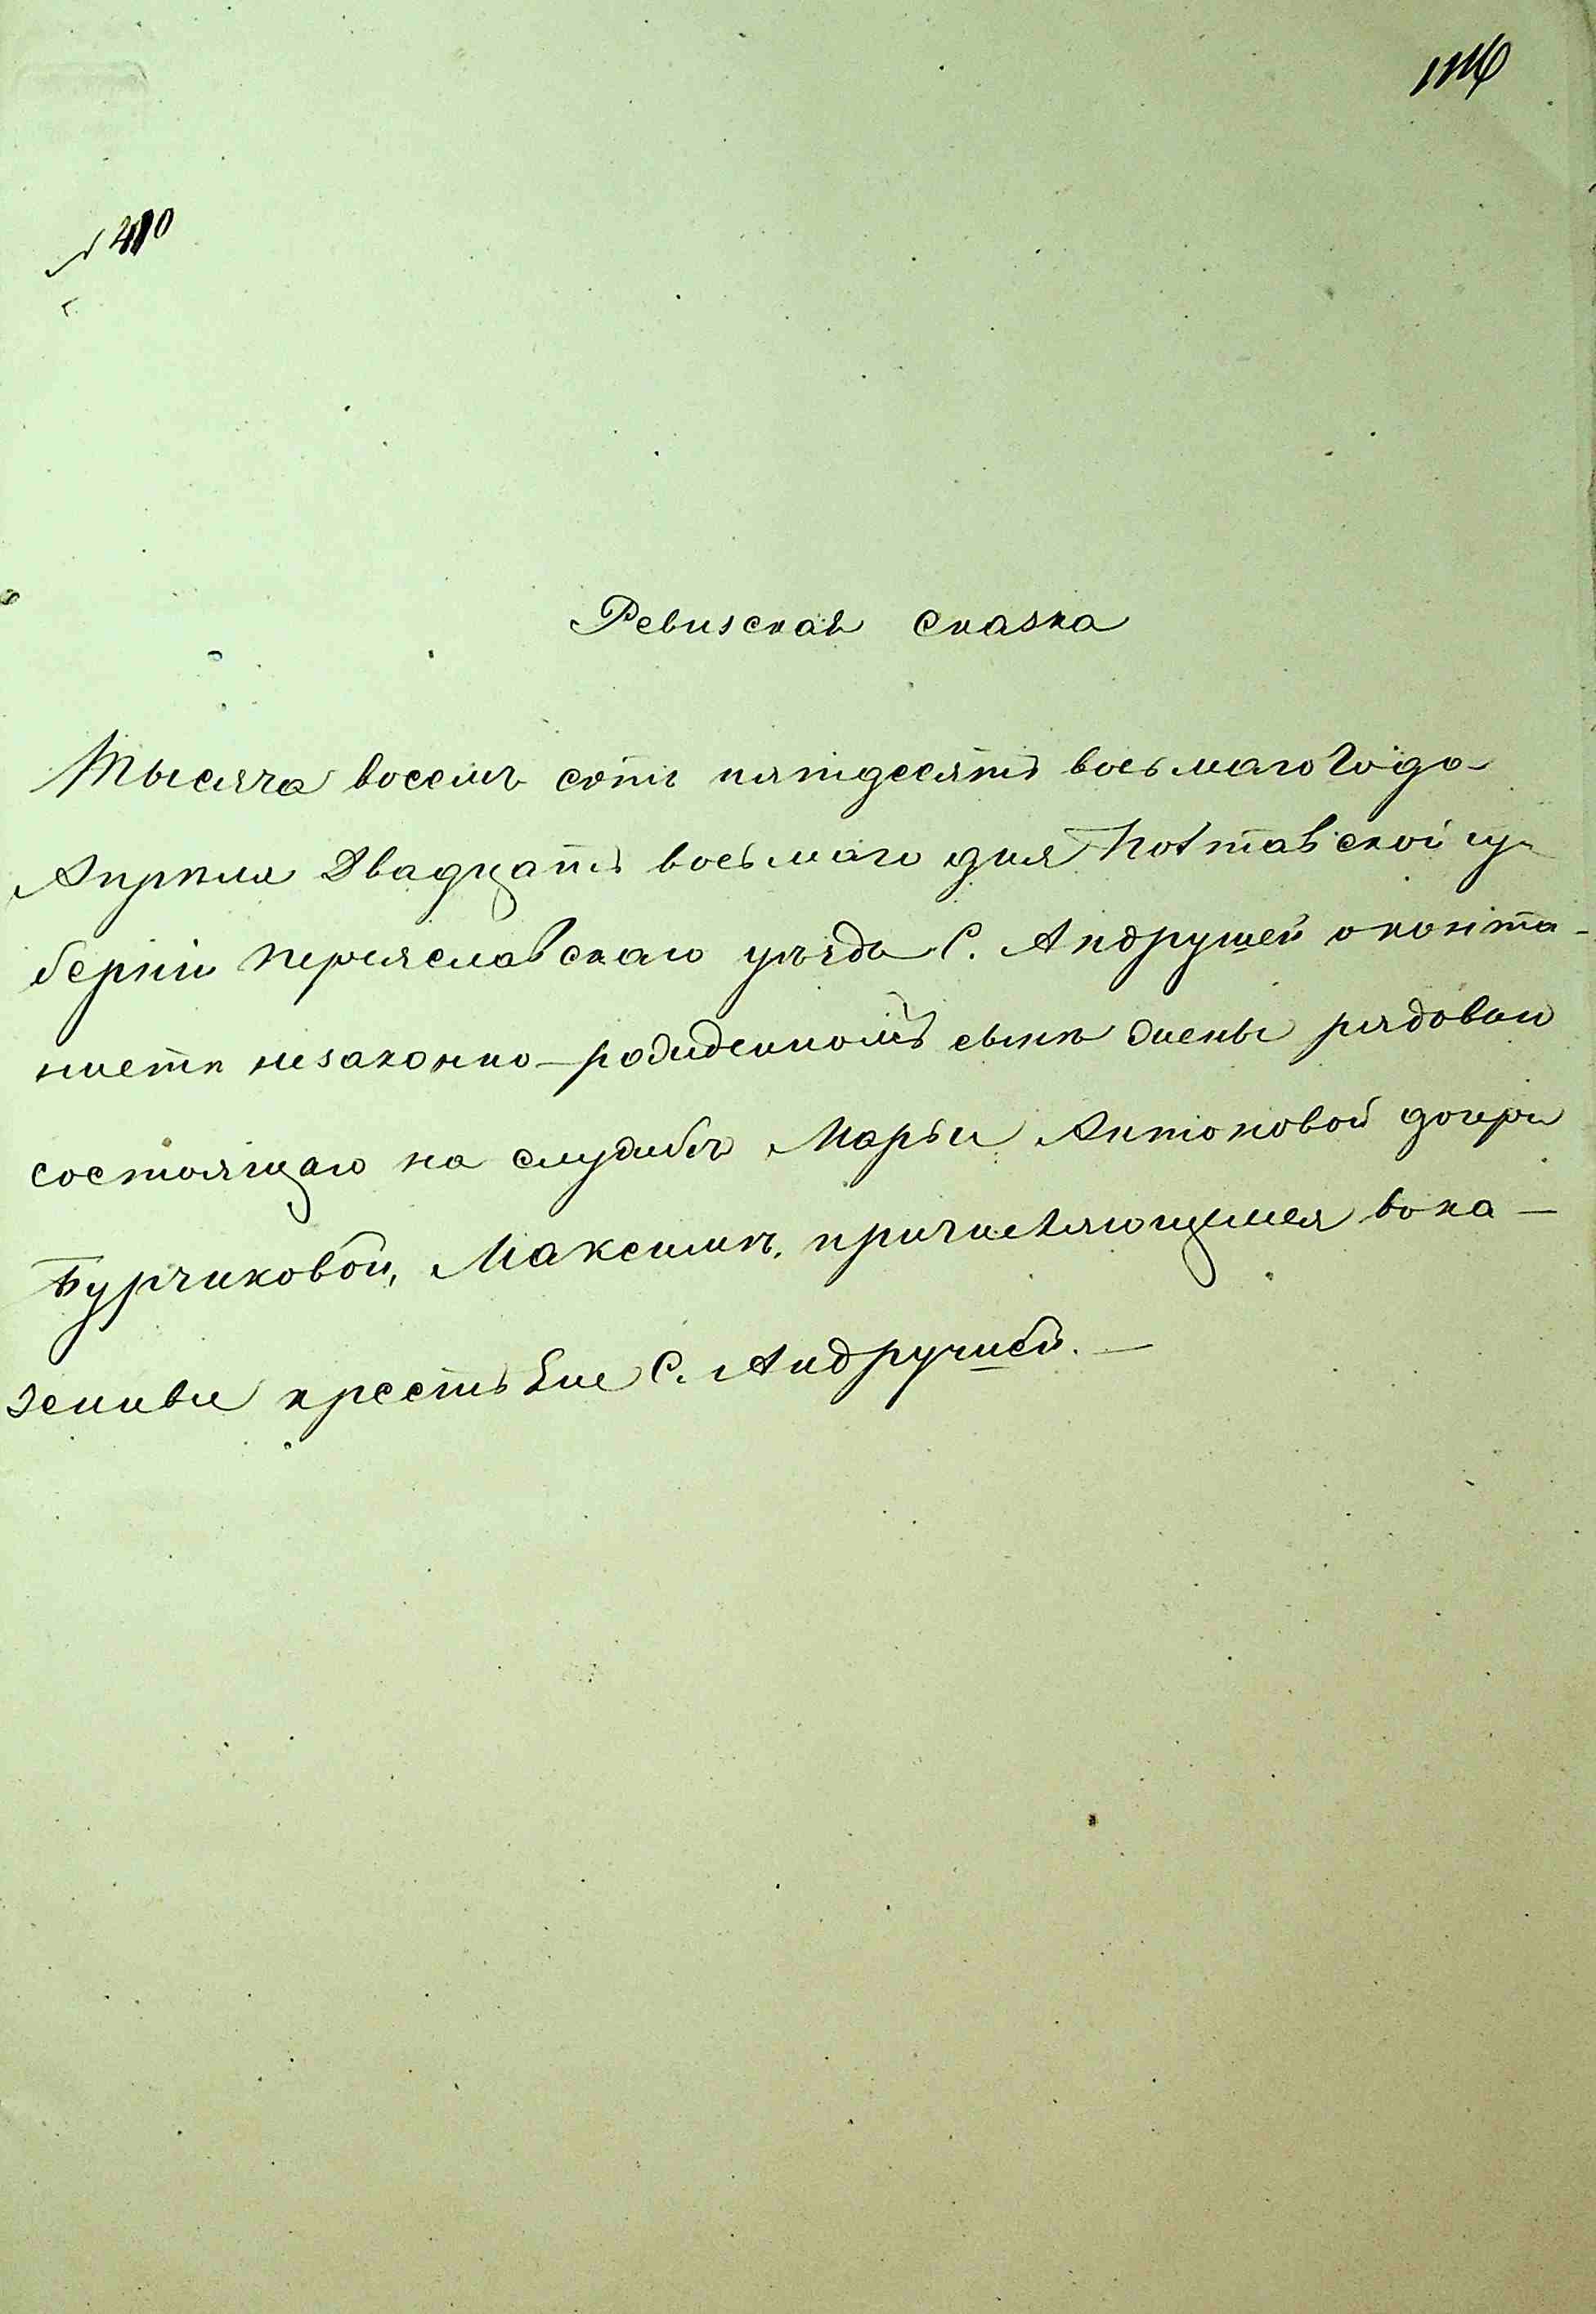 № 210
Ревизская сказка
Тысяча восемъ сотъ пятдесятъ восьмаго Года
Апрѣля Двадцать восьмаго дня Полтавской гу-
берніи Переяславскаго уѣзда С. Андрушей о канто-
нистѣ незаконно-рожденномъ сынѣ жены рядоваго
состоящаго на службѣ Марьи Антоновой дочери
Бурчиковой, Максимѣ, причисляющемся вока-
зенныи крестьяне С. Андрушей.—